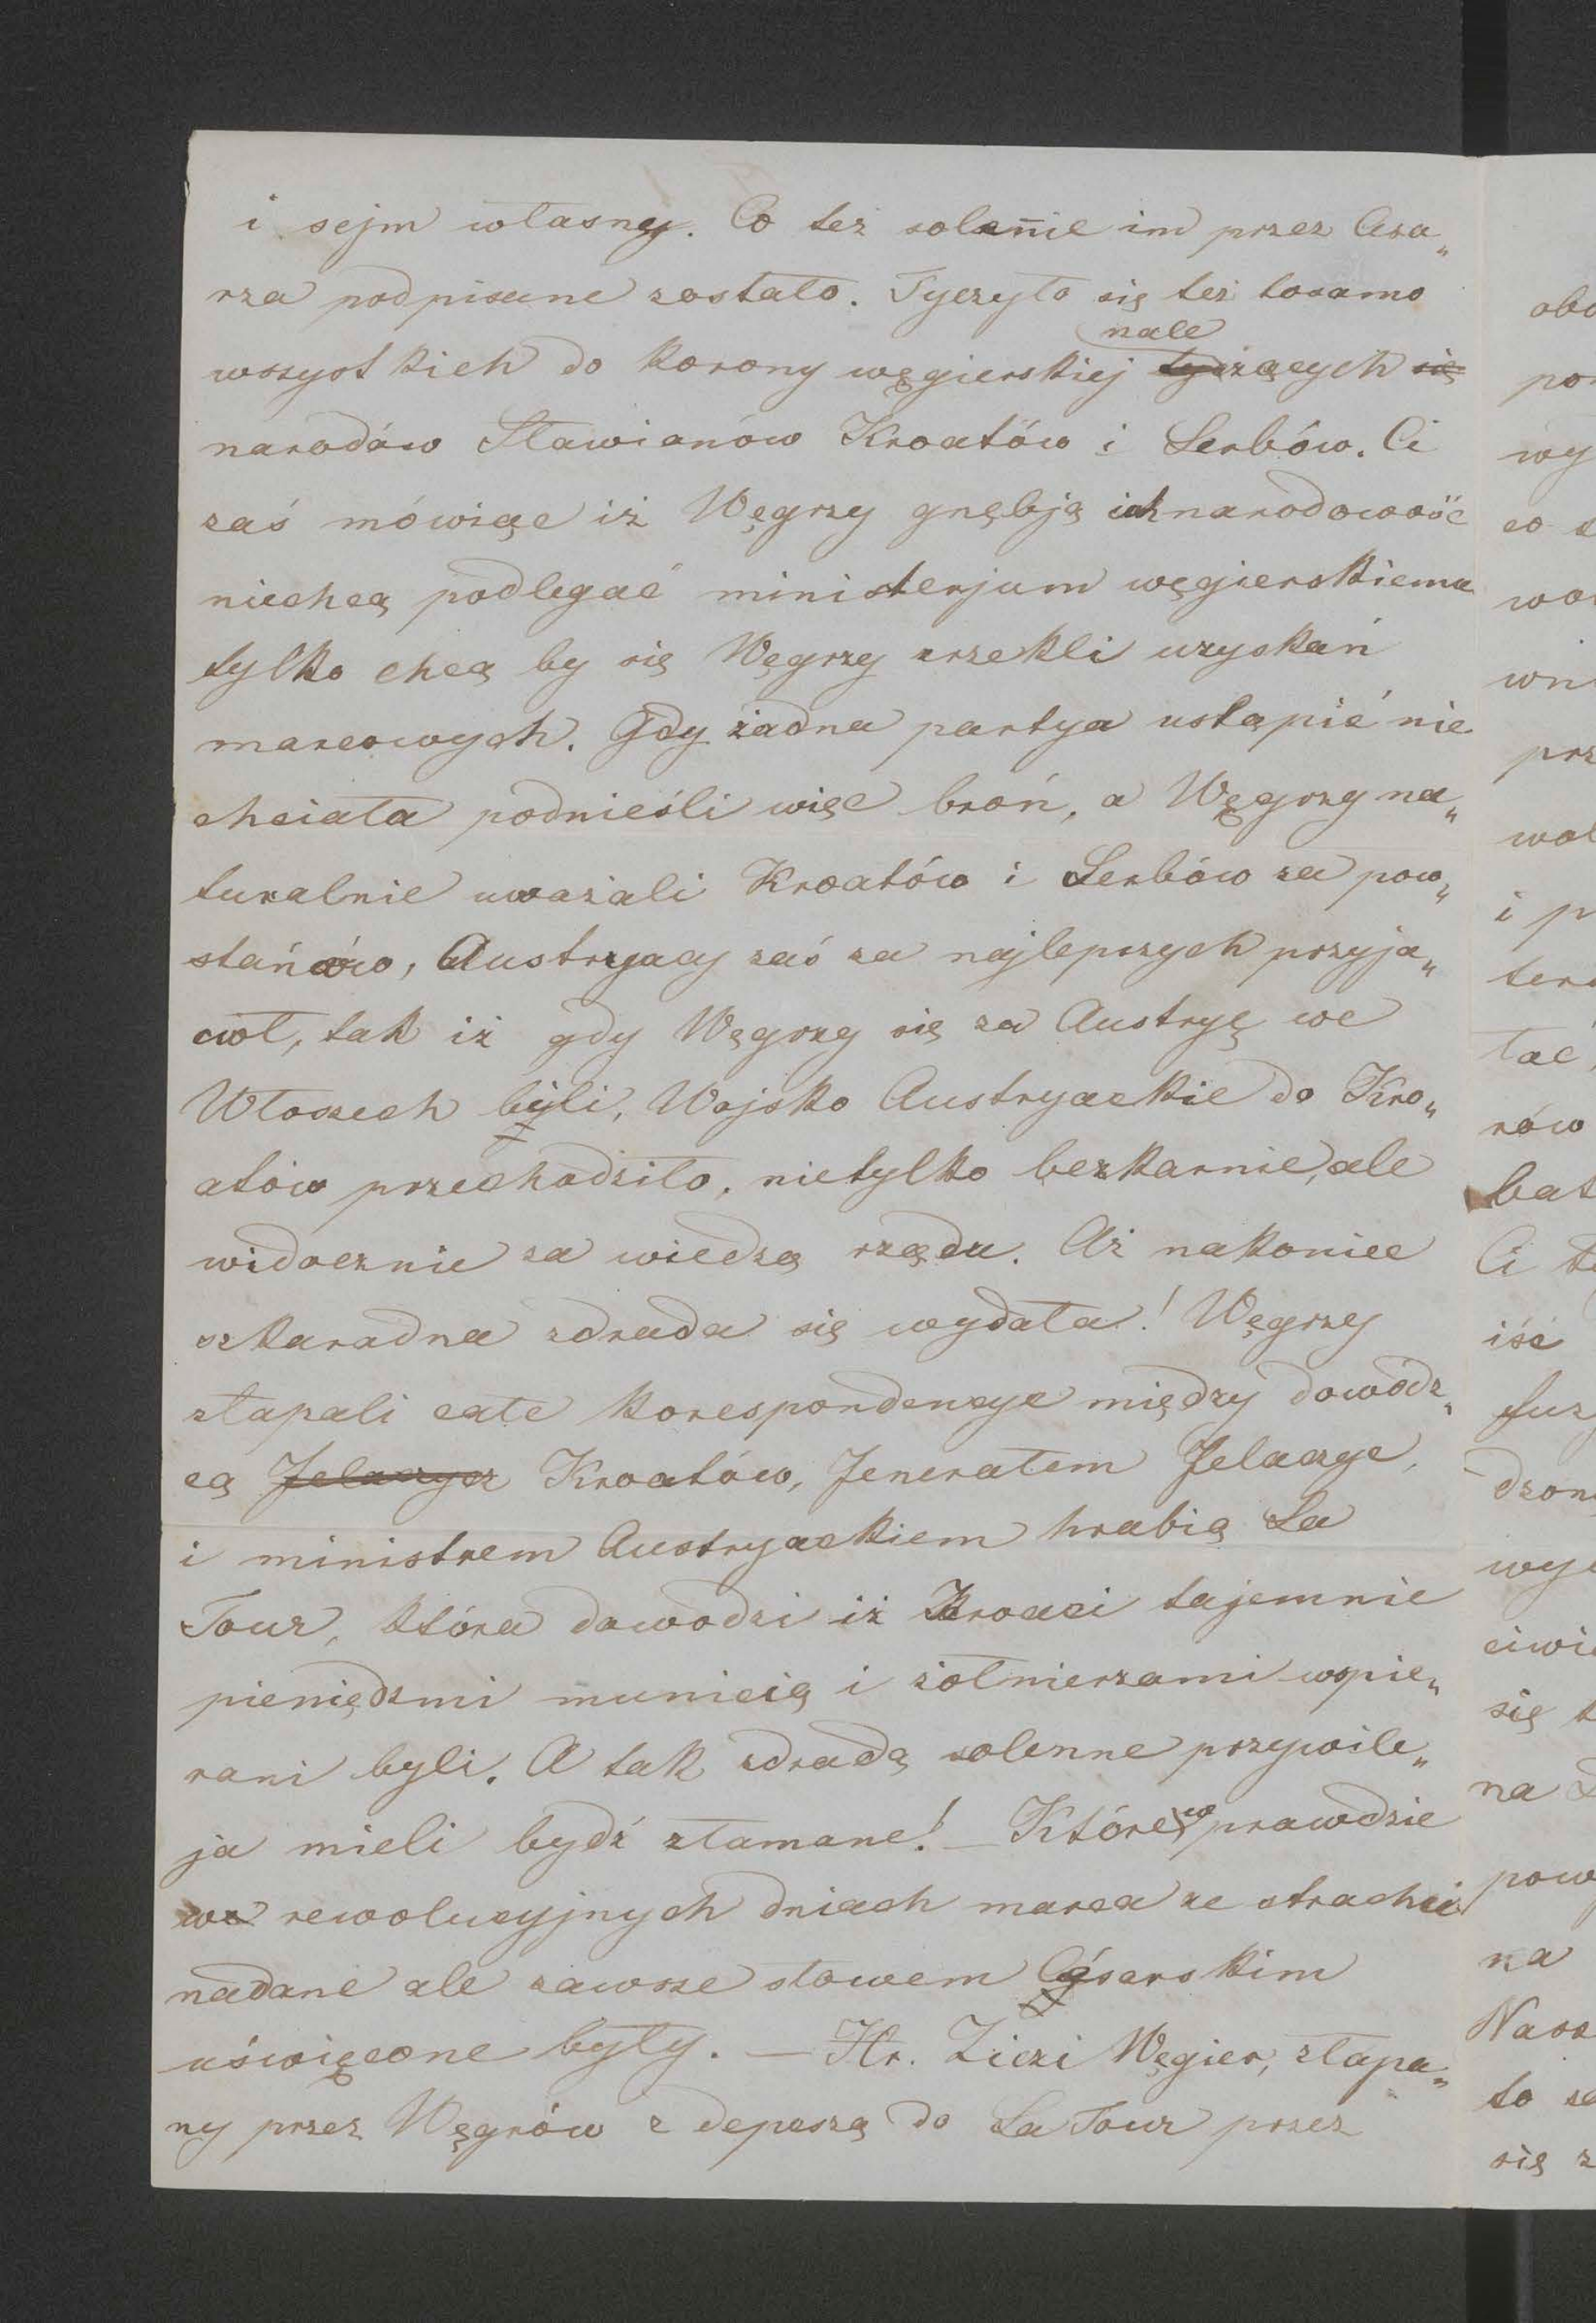 i sejm własny. Co też solennie im przez Cesa„
rza podpisane zostało. Tyczyło się też tosamo
nale
wszystkich do korony węgierskiej tyczących się
narodów Sławianów Kroatów i Serbów. Ci
zaś mówiąc iż Węgrzy gnębją ich narodowość
niechcą podlegać ministerjum węgierskiemu
tylko chcą by się Węgrzy zrzekli uzyskań
marcowych. Gdy żadna partya ustąpić nie
chciała podnieśli więc broń, a Węgrzy na„
turalnie uważali Kroatów i Serbów za pow„
stańców, Austryacy zaś za najlepszych przyja„
ciół, tak iż gdy Węgrzy się za Austryę we
Włoszech bili, Wojsko Austryackie do Kro„
atów przechodziło, nietylko bezkarnie, ale
widocznie za wiedzą rządu. Aż nakoniec
szkaradna zdrada się wydała! Węgrzy
złapali całe korespondencye między dowódz„
cą Jelaczycz Kroatów, Jenerałem Jelaczyc,
i ministrem Austryackiem hrabią La
Tour, która dowodzi iż Kroaci tajemnie
pieniędzmi municią i żołnierzami wspie„
rani byli. A tak zdradą solenne przywile„
ja mieli bydź złamane! – Które w prawdzie
we rewolucyjnych dniach marca ze strachu
nadane ale zawsze słowem Cesarskim
uświęcone były. – Hr. Ziczi Węgier, złapa„
ny przez Węgrów z depeszą do La Tour przez